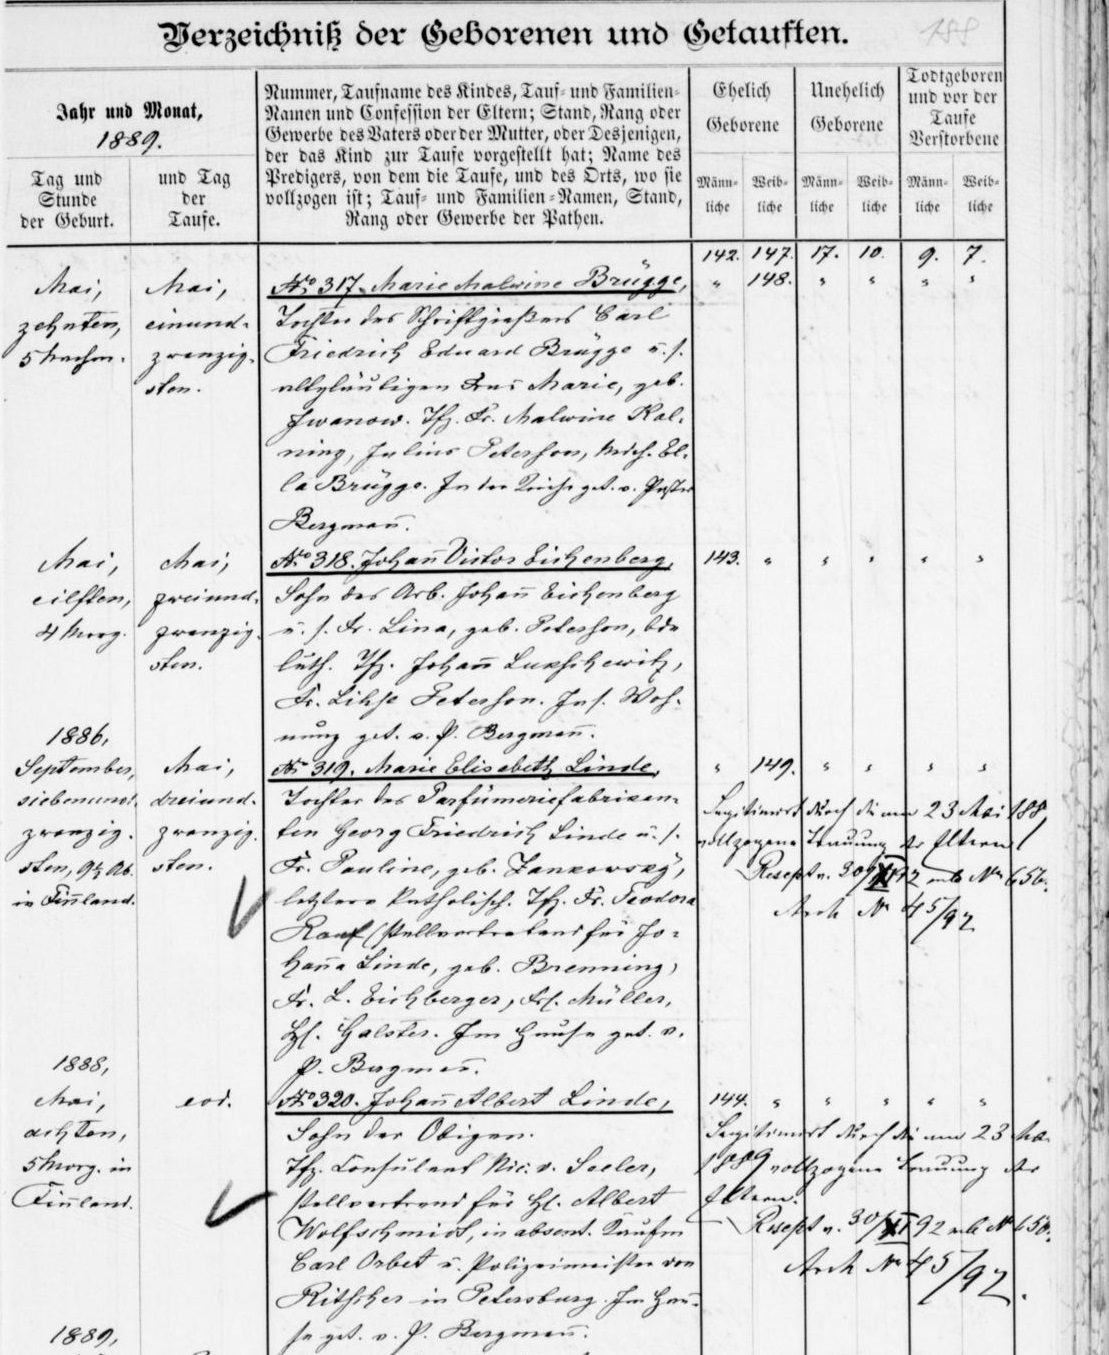 Verzeichniß der Geborenen und Getauften.
188
Jahr und Monat,
1889.
Tag und
Stunde
der Geburt.
und Tag
der
Taufe.
Nummer, Taufname des Kindes, Tauf- und Familien-
Namen und Confession der Eltern; Stand, Rang oder
Gewerbe des Vaters oder der Mutter, oder Desjenigen,
der das Kind zur Taufe vorgestellt hat; Name des
Predigers, von dem die Taufe, und des Orts, wo sie
vollzogen ist; Tauf- und Familien-Namen, Stand,
Rang oder Gewerbe der Pathen.
Ehelich
Geborene
Unehelich
Geborene
Todtgeboren
und vor der
Taufe
Verstorbene
Männ-
liche
Weib-
liche
Männ-
liche
Weib-
liche
Männ-
liche
Weib-
liche
142. 147. 17. 10. 9. 7.
Mai,
zehnten,
5 Nachm.
Mai,
einund-
zwanzig-
sten.
No 317. Marie Malwine Brügge,
Tochter des Schriftgießers Carl
Friedrich Eduard Brügge u. s.
altgläubigen Frau Marie, geb.
Iwanow. Tfz. Fr. Malwine Kal-
ning, Julius Peterson, Mich. El-
la Brügge. In der Kirche get. v. Pastor
Bergmann.
" 148. " " " "
Mai,
eilften,
4 Morg.
Mai,
zweiund-
zwanzig-
sten.
No 318. Johann Victor Eichenberg,
Sohn des Arb. Johann Eichenberg
u. s. Fr. Lina, geb. Peterson, bde
luth. Tfz. Johann Lukschewitz,
Fr. Lihse Peterson. In s. Woh-
nung get. v. P. Bergmann.
143. " " " " "
1886,
September,
siebenund-
zwanzig-
sten, 9½ Ab.
in Finnland.
Mai,
dreiund-
zwanzig-
sten.
No 319. Marie Elisabeth Linde,
Tochter des Parfümeriefabrikan-
ten Georg Friedrich Linde u. s.
Fr. Pauline, geb. Zankowsky,
letztere katholisch. Tfz. Fr. Feodora
stellvertretend für Jo-
hanna Linde, geb. Brenning,
Fr. L. Eichberger, Frl. Müller,
H. Galster. Im Hause get. v.
P. Bergmann.
" 149. " " " "
Legitimirt durch die am 23 Mai 188
vollzogene Trauung der Eltern
Resept v. 30/XI 92 sub No 656.
Arch No 45/92
1888,
Mai,
achten,
5 Morg. in
Finnland.
eod.
No 320. Johann Albert Linde,
Sohn der Obigen.
Tfz. Consulent Nic. v. Seeler,
stellvertretend für H. Albert
Wolfschmidt, in absent. Kaufm
Carl Orbet u. Polizeimeister von
Ritscher in Petersburg. Im Hau-
se get. v. P. Bergmann.
144. " " " " "
Legitimirt durch die am 23 Mai
1889 vollzogene Trauung der
Eltern.
Resept v. 30/XI 92 sub No 656.
Arch No 45/92.
1889,